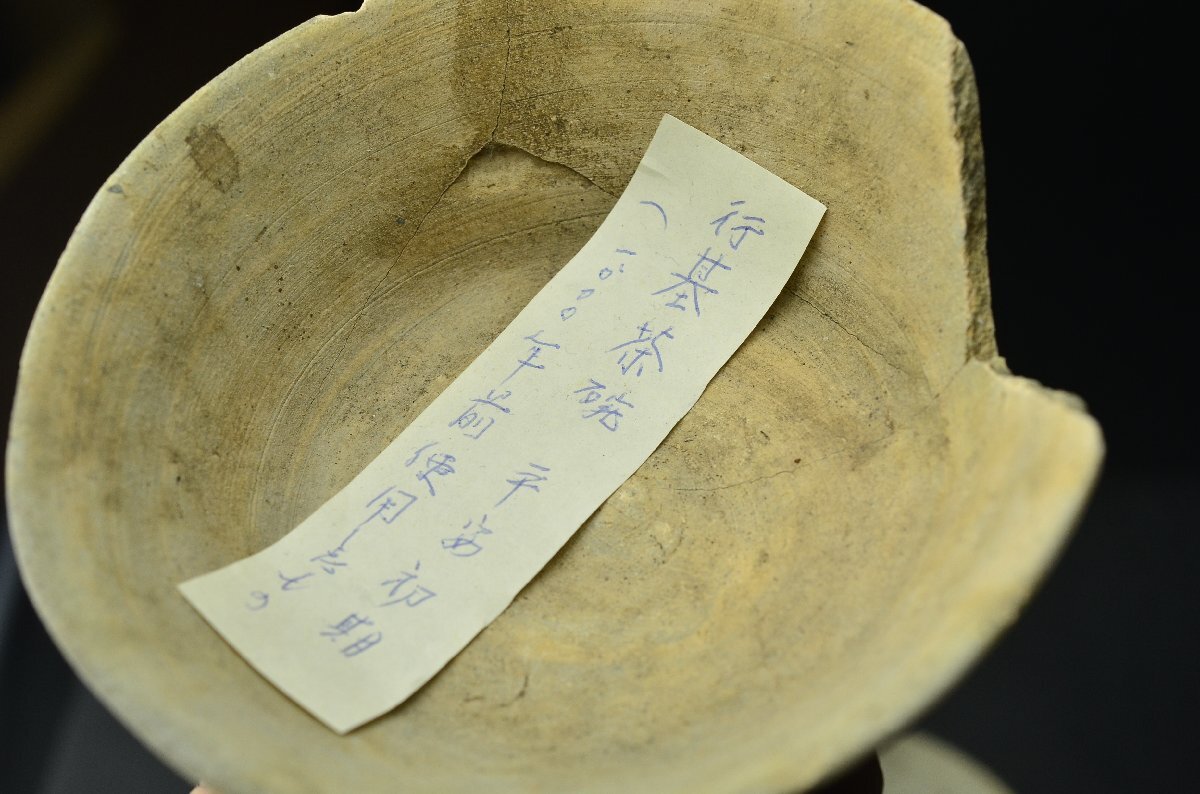 行基茶碗 平安初期
(一〇〇〇年前使用したもの